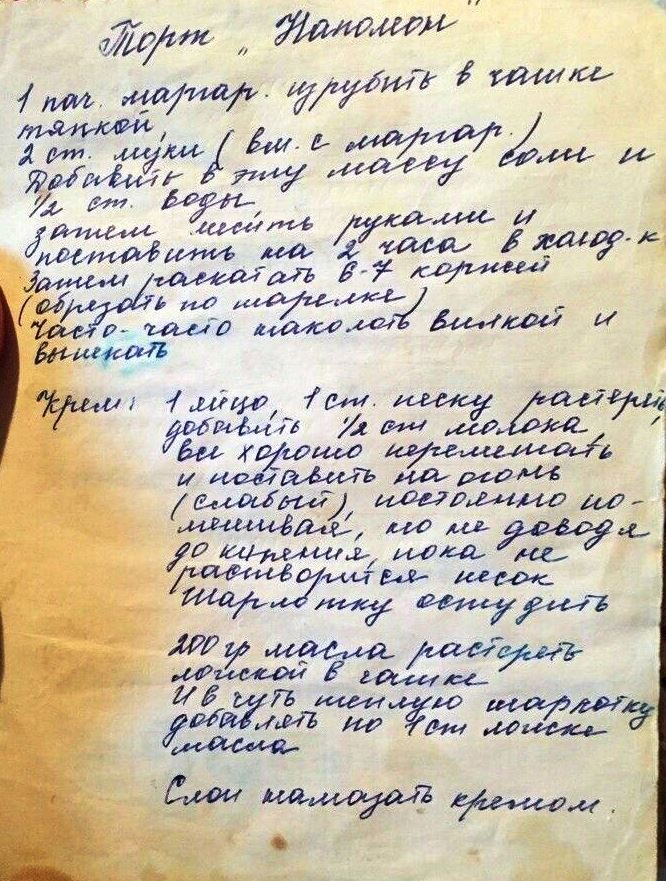 Торт „Наполеон"
1 пач. маргар. изрубить в чашке
тяпкой,
2 ст. муки (вм. с маргар.)
Добавить в эту массу соли и
1/2 ст. воды
затем месить руками и
поставить на 2 часа в холод-к
Затем раскатать 6-7 коржей
(обрезать по тарелке)
Часто-часто наколоть вилкой и
выпекать
Крем: 1 яйцо, 1 ст. песку растереть,
добавить 1/2 ст молока,
все хорошо перемешать
и поставить на огонь
(слабый), постоянно по-
мешивая, но не доводя
до кипения, пока не
растворится песок
Шарлотку остудить
200 гр масла растереть
ложкой в чашке
И в чуть теплую шарлотку
добавлять по 1 ст ложке
масла
Слои намазать кремом.